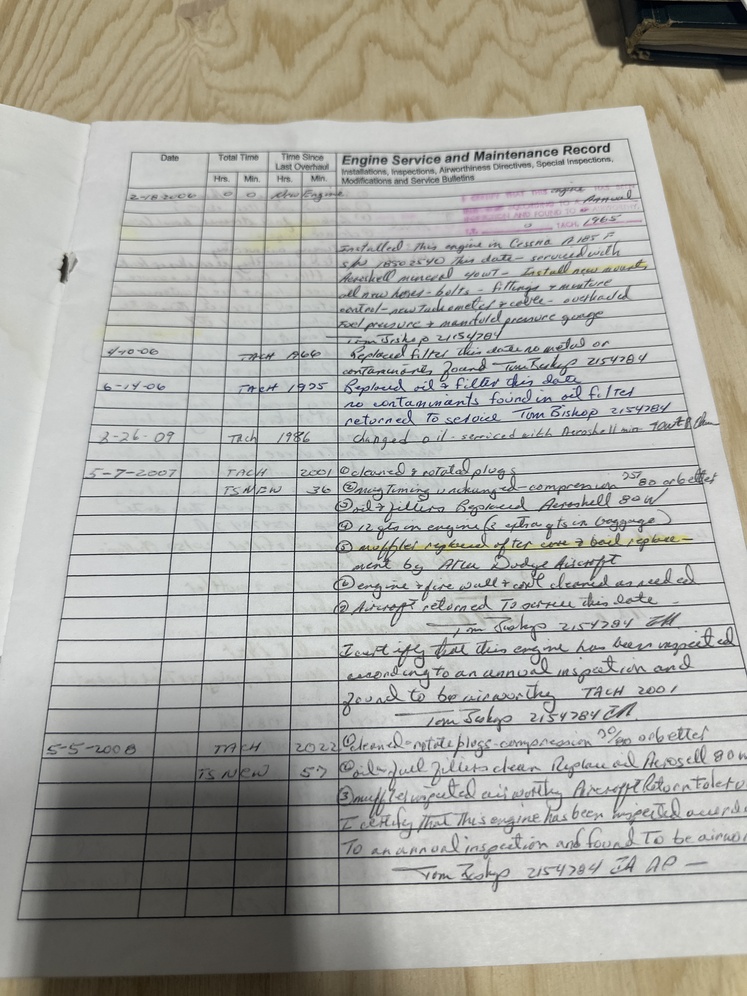 Date
Total Time
Time Since
Last Overhaul
Hrs. Min. Hrs. Min.
Engine Service and Maintenance Record
Installations, Inspections, Airworthiness Directives, Special Inspections,
Modifications and Service Bulletins
2-18-2006 0 0 New Engine
I CERTIFY THAT THIS engine
Annual
AND FOUND TO
TACH 1965
Installed this engine in Cessna A185 F
S/N 18502540 This date - serviced with
Aeroshell mineral 40WT - Install new mounts
all new hoses - bolts - fittings & mixture
control - new tachometer & cover - overhauled
Fuel pressure & manifold pressure guage
Tom Bishop 2154784
4-10-06 TACH 1966 Replaced filter this date no metal or
contaminants found Tom Bishop 2154784
6-14-06 TACH 1975 Replaced oil & filter this date
no contaminants found in oil filter
returned to service Tom Bishop 2154784
2-26-09 Tach 1986 changed oil - serviced with Aeroshell min
5-7-2007 TACH 2001 ① cleaned & rotated plugs
TSNEW 36 ② mag timing unchanged - compression 80 or better
③ oil & filters Replaced Aeroshell 80W
④ 12 qts in engine (2 extra qts in baggage)
⑤ muffler replaced after core & bail replace-
ment by Dodge Aircraft
⑥ engine & fire wall & cowl cleaned as needed
⑦ Aircraft returned To service this date -
Tom Bishop 2154784 IA
I certify that this engine has been inspected
according to an annual inspection and
found to be airworthy TACH 2001
Tom Bishop 2154784 IA
5-5-2008 TACH 2022 ① cleaned - rotate plugs - compression 70/80 or better
TSNEW 57 ② oil - fuel filters clean Replace oil Aerosell 80W
③ muffler inspected airworthy Aircraft Return to
I certify that this engine has been inspected
To an annual inspection and found To be
Tom Bishop 2154784 IA AP -